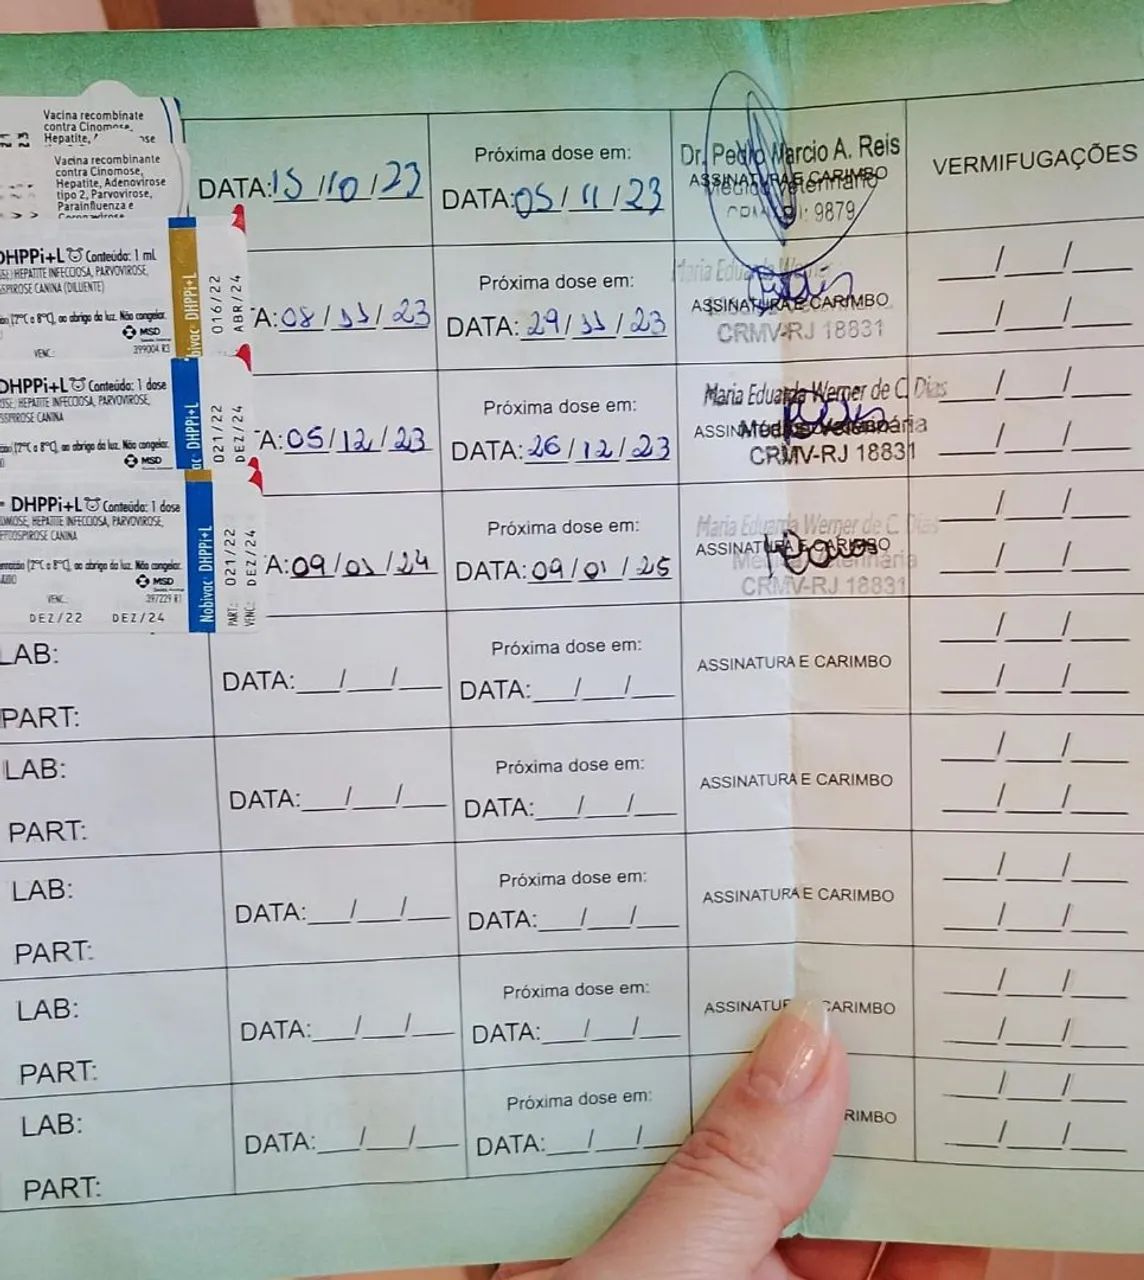 Vacina recombinate
contra Cinomose,
Hepatite,
Vacina recombinante
contra Cinomose,
Hepatite, Adenovirose
tipo 2, Parvovirose,
Parainfluenza e
DATA: 15/10/23
Próxima dose em:
DATA: 05/11/23
Dr. Pedro Marcio A. Reis
ASSINATURA E CARIMBO
Médico Veterinário
9879
VERMIFUGAÇÕES
DHPPi+L Conteúdo: 1 mL
HEPATITE INFECCIOSA, PARVOVIROSE,
CANINA (DILUENTE)
(2ºC a 8ºC), ao abrigo da luz. Não congelar.
MSD
VENC.
399004 R3
DHPPi+L
016/22
ABR/24
A: 08/11/23
Próxima dose em:
DATA: 29/11/23
Maria Eduarda Werner
ASSINATURA E CARIMBO
CRMV-RJ 18831
DHPPi+L Conteúdo: 1 dose
HEPATITE INFECCIOSA, PARVOVIROSE,
CANINA
(2ºC a 8ºC), ao abrigo da luz. Não congelar.
MSD
DHPPi+L
021/22
DEZ/24
A: 05/12/23
Próxima dose em:
DATA: 26/12/23
Maria Eduarda Werner de C. Dias
Médica Veterinária
CRMV-RJ 18831
DHPPi+L Conteúdo: 1 dose
HEPATITE INFECCIOSA, PARVOVIROSE,
CANINA
(2ºC a 8ºC), ao abrigo da luz. Não congelar.
MSD
VENC.
397229 R1
DEZ/22 DEZ/24
Nobivac DHPPi+L
PART: 021/22
VENC: DEZ/24
A: 09/01/24
Próxima dose em:
DATA: 09/01/25
Maria Eduarda Werner de C. Dias
ASSINATURA E CARIMBO
Médica Veterinária
CRMV-RJ 18831
LAB:
PART:
DATA:___/___/___
Próxima dose em:
DATA:___/___/___
ASSINATURA E CARIMBO
LAB:
PART:
DATA:___/___/___
Próxima dose em:
DATA:___/___/___
ASSINATURA E CARIMBO
LAB:
PART:
DATA:___/___/___
Próxima dose em:
DATA:___/___/___
ASSINATURA E CARIMBO
LAB:
PART:
DATA:___/___/___
Próxima dose em:
DATA:___/___/___
ASSINATURA E CARIMBO
LAB:
PART:
DATA:___/___/___
Próxima dose em:
DATA:___/___/___
RIMBO